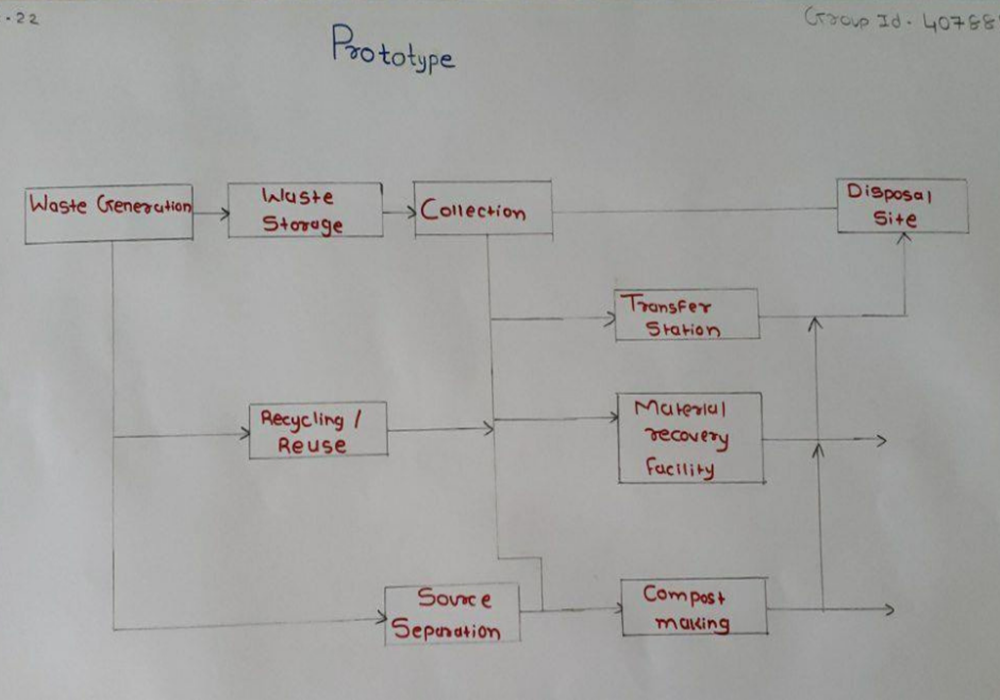 .22
Group Id. 40788
Prototype
Waste Generation
Waste
Storage
Collection
Disposal
Site
Transfer
Station
Recycling /
Reuse
Material
recovery
facility
Source
Separation
Compost
making